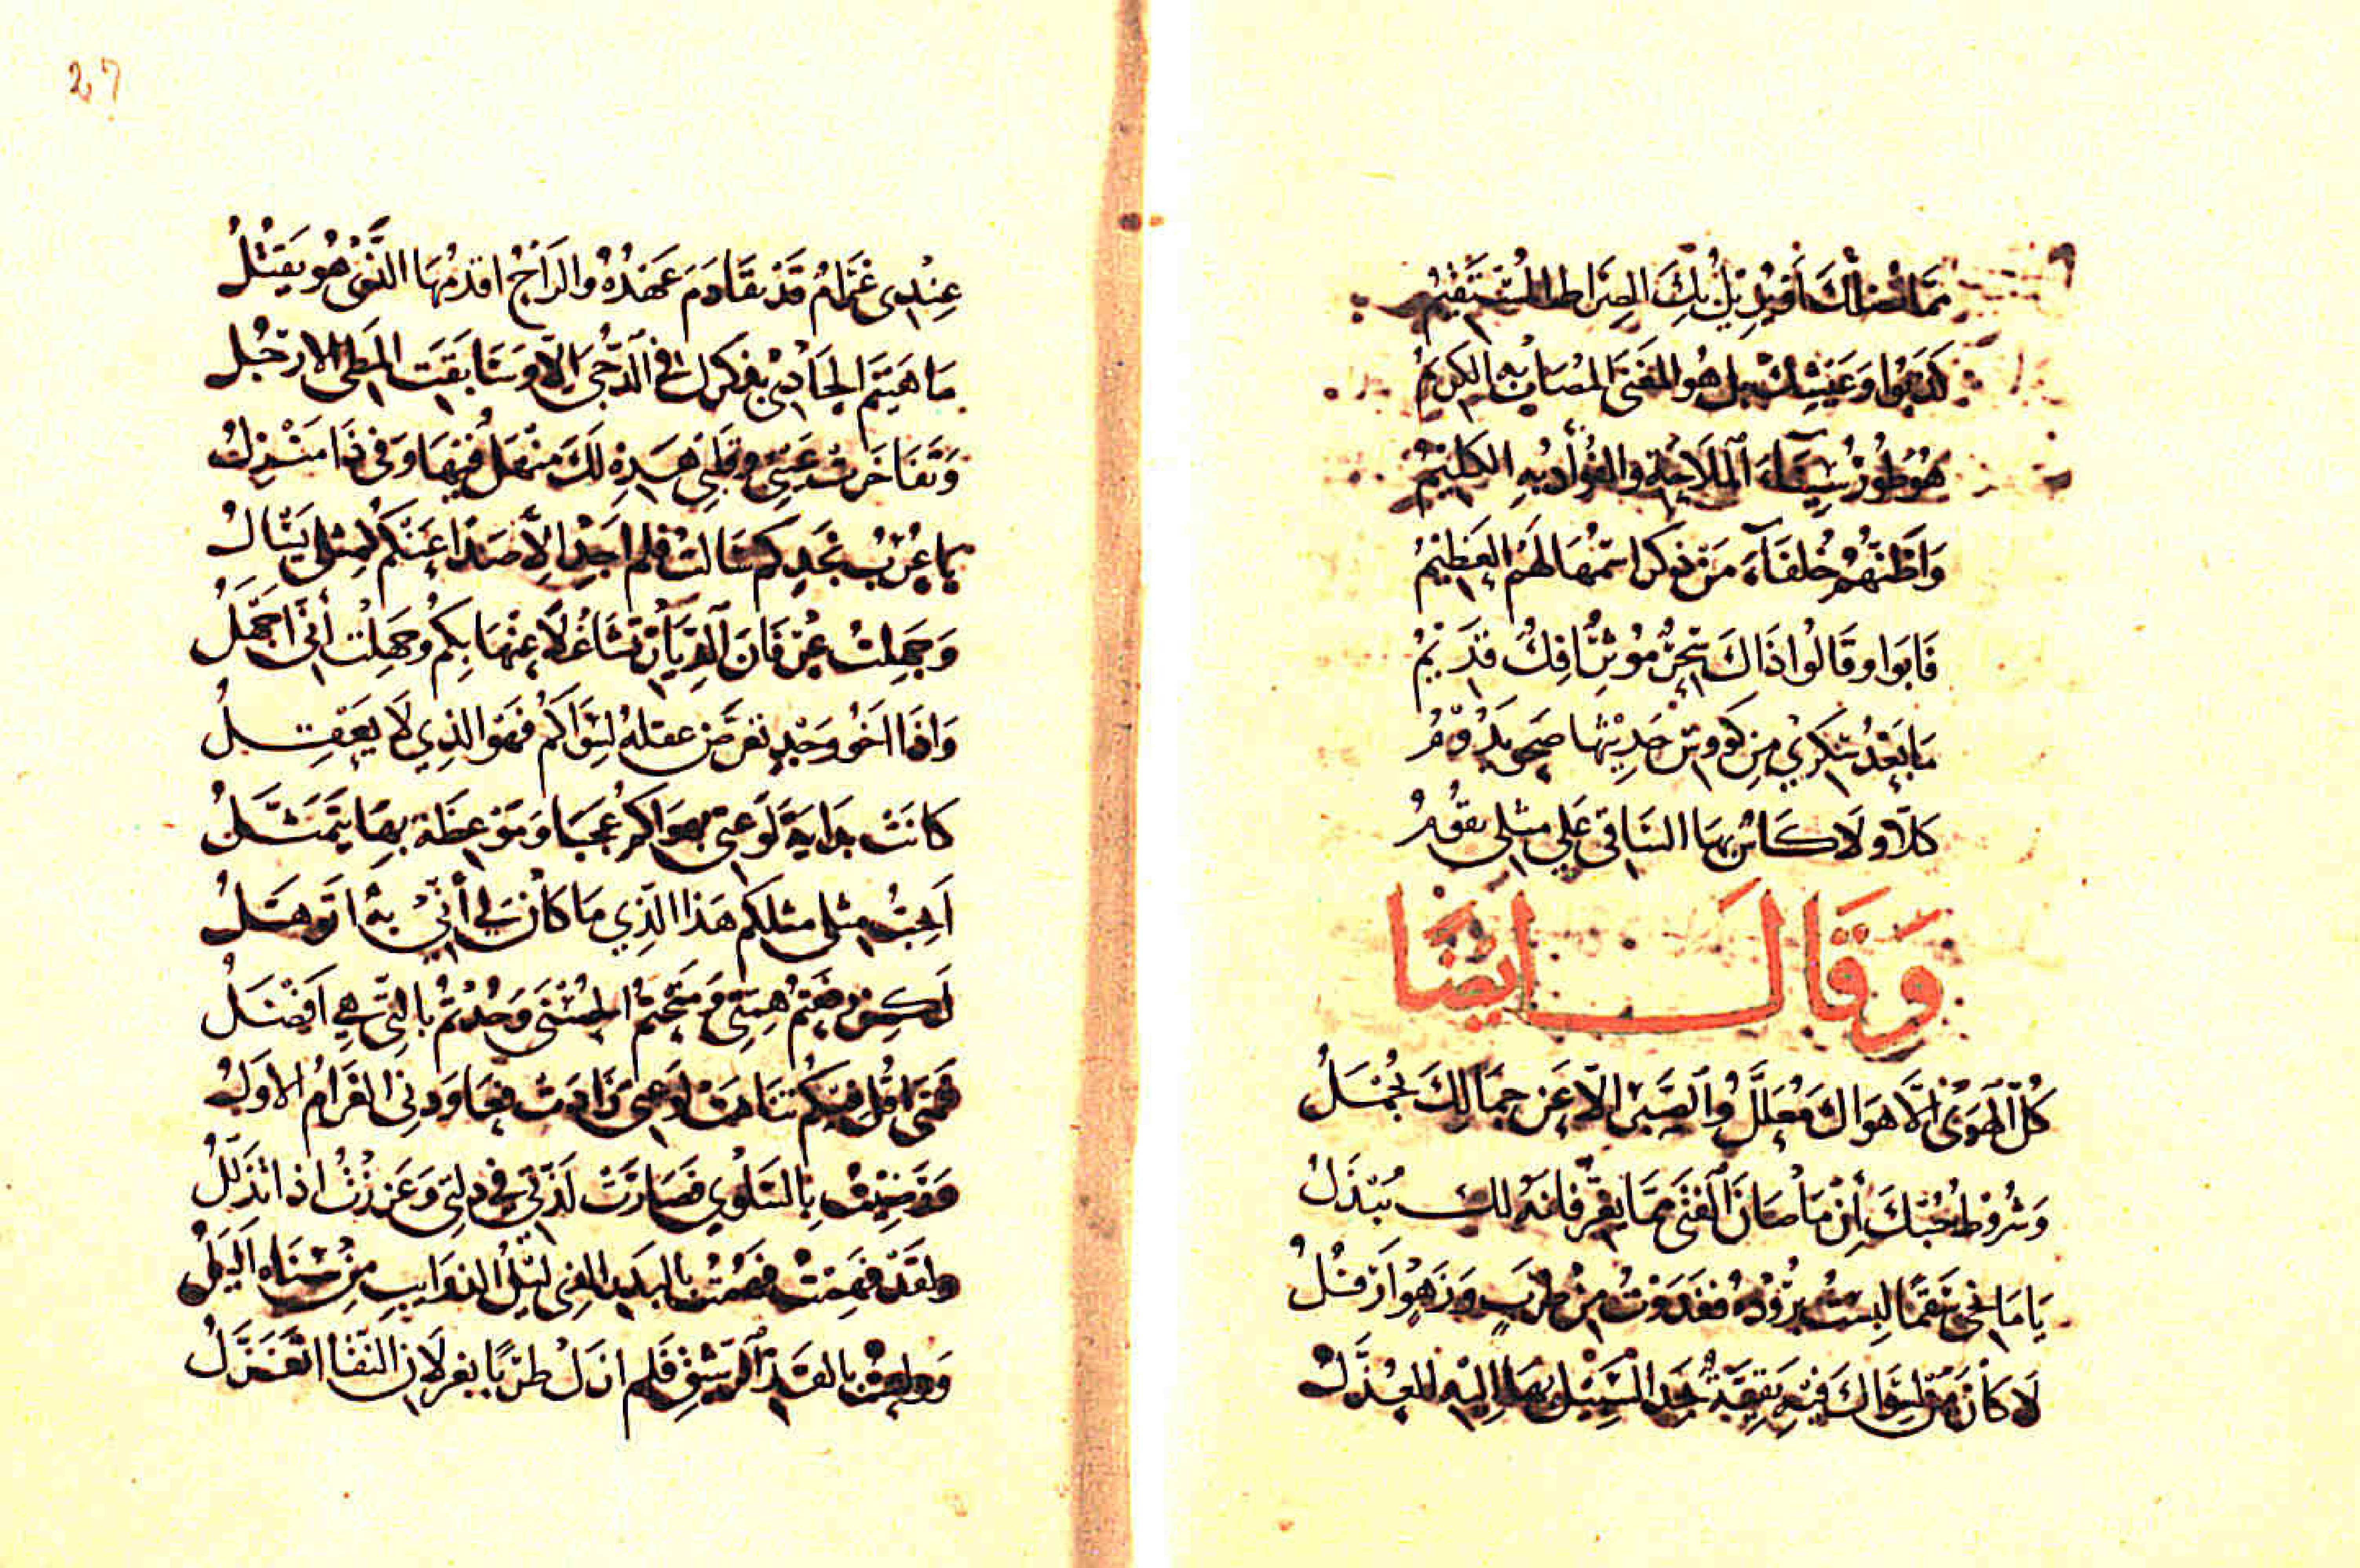 كَذَبُوا وَعَيْشِكَ بل هُوَ المَغنَى المُصَانُ به الكَرِيمُ
هُوَ طُورُ سِينَاءَ المَلَاحَةِ والفُؤَادُ بِهِ الكَلِيمُ
وَاَظُنُّهُم حُلفَآءَ مَن ذكر اسمهَا لَهُمُ العَظِيمُ
فَابَوا وقَالُوا ذَاكَ سِحْرٌ مُؤْثَرٌ افِكٌ قَدِيمُ
مَا بَعْدَ سُكرِي مِن كووسِ حَدِيثِهَا صحو يَدُومُ
كلّا ولَا كَاسٌ بهَا السَاقي عَلي مثلي يقُومُ
وَقَالَ ايضًا
كُلّ الهَوَى الَّا هَوَاكَ مُعَلَّلُ والصَبْرُ الّا عَن جمَالِكَ يَجْمُلُ
وَشُرُوطُ حُبِّكَ أَن مَا صَانَ الفَتَى ممَّا يعِزُّ فانه لك يُبْذَلُ
يَا مَانحِي سَقَمًا لبِسْتُ بُرُودَهُ فغَدَوتُ مِن طَرَبٍ وَزَهوٍ اَرفُلُ
لَا كَانَ مَن لِسِوَاكَ فيهِ بَقِيَّةٌ يجد السَبِيل بهَا اليه العُذَّلُ
27
عِنْدِى غَرَامٌ قَدْ تقَادَمَ عَهْدُهُ والرَاحُ اقدمُهَا الذي هُوَ يقتُلُ
مَا هَيْنَمَ الحَادِى بذكرك في الدُّجَى الّا وَسَابَقَتِ المَطِى الارجُل
وَتَفَاخَرَت عَيْنِى وقلبِي هَذِهِ لَكَ مَنْهَلٌ فيهَا وَفي ذَا مَنْزِلُ
يا عُرْبَ نجَدٍ كم سَالتُ فلم اَجِدْ الّا صَدًا عَنكُم لِمِثلي يَسْاَلُ
وَجَهِلتُ عِرفَانَ الدِيَارِ تشَاغُلًا عنْهَا بِكُم وجَهِلْتُ أَنِّى اَجْهَلُ
وَاذَا اَخُو وَجْدٍ تعَرَّضَ عقلهُ لِسِوَاكُم فَهوَ الذِي لَا يَعْقِلُ
كانَتْ بدَايَةُ لَوعتِي بهوَاكمُ عُجبًا وَمَوعِظَة بهَا يُتَمَثَّلُ
اَيحبُّ مِثلي مثلكم هَذا الذِي مَا كَانَ لِي أَنِّيْ بهِ اَتَوَهَّلُ
لَكِن رَفَعتُم هِمَّتِي وَمَنَحْتمُ الحُسْنَى وَجُدْتُمُ بالتِي هِي اَفضَلُ
فمَتى اقُل فيكُم تنَاهَت لَوعتي زَادَت فعَاوَدنِي الغَرَامُ الاوَلُ
وَرَضِيْتُ بِالسَلْوي فصَارَت لَذّتي في ذلتي وَعَزَزتُ اذ اتذَلَّلُ
ولقَد فهمْتُ فهِمْتُ بالبدر الذي ليلُ الذوَايبِ مِنْ سَنَاه اَليَلُ
وَولعْتُ بالقَدِّ الرَشِيْقِ فَلم ازَلْ طرَبًا بغزلَانِ النَقَا اتغَزَّلُ